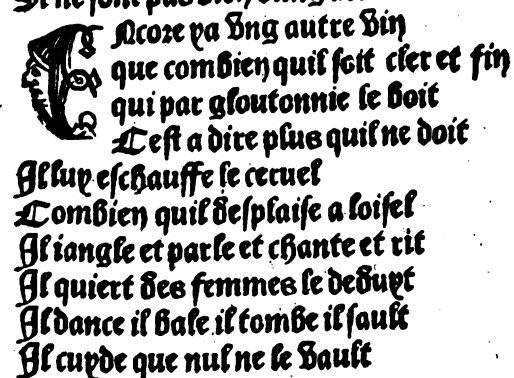 Si ne sont pas
ENcore ya vng autre vin
que combien quil soit cler et fin
qui par gloutonnie le boit
Cest a dire plus quil ne doit
Il luy eschauffe le ceruel
Combien quil desplaise a loisel
Il iangle et parle et chante et rit
Il quiert des femmes le deduyt
Il dance il bale il tombe il sault
Il cuyde que nul ne le vault